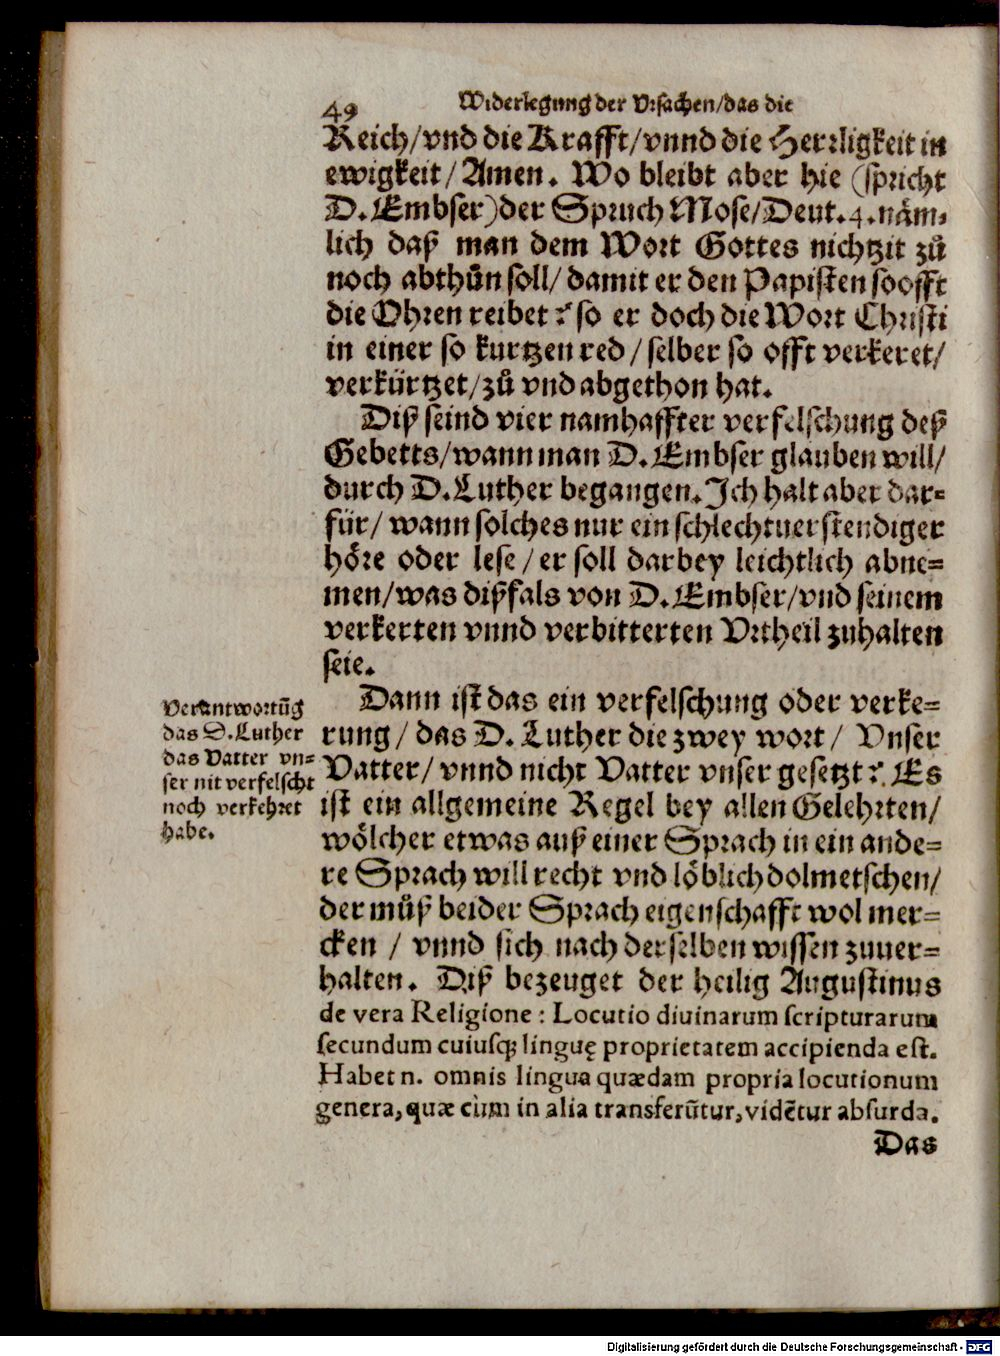 49 Widerlegung der Vrsachen/das die
Reich/vnd die Krafft/vnnd die Herrligkeit in
ewigkeit/Amen. Wo bleibt aber hie (spricht
D.Embser)der Spruch Mose/Deut.4.näm-
lich daß man dem Wort Gottes nichtzit zů
noch abthůn soll/damit er den Papisten soofft
die Ohren reibet? so er doch die Wort Christi
in einer so kurtzen red/selber so offt verkeret/
verkürtzet/zů vnd abgethon hat.
Diß seind vier namhaffter verfelschung deß
Gebetts/wann man D.Embser glauben will/
durch D.Luther begangen.Ich halt aber dar=
für/wann solches nur ein schlechtuerstendiger
höre oder lese/er soll darbey leichtlich abne=
men/was dißfals von D.Embser/vnd seinem
verkerten vnnd verbitterten Vrtheil zuhalten
seie.
Dann ist das ein verfelschung oder verke=
rung/das D.Luther die zwey wort/ Vnser
Vatter/vnnd nicht Vatter vnser gesetzt? Es
ist ein allgemeine Regel bey allen Gelehrten/
wölcher etwas auß einer Sprach in ein ande=
re Sprach will recht vnd löblich dolmetschen/
der můß beider Sprach eigenschafft wol mer=
cken / vnnd sich nach derselben wissen zuuer=
halten. Diß bezeuget der heilig Augustinus
de vera Religione : Locutio diuinarum scripturarum
secundum cuiusq; linguę proprietatem accipienda est.
Habet n. omnis lingua quædam propria locutionum
genera, quæ cùm in alia transferũtur, vidẽtur absurda.
Das
Verantwortũg
das D.Luther
das Vatter vn=
ser nit verfelscht
noch verkehret
habe.
Digitalisierung gefördert durch die Deutsche Forschungsgemeinschaft - DFG